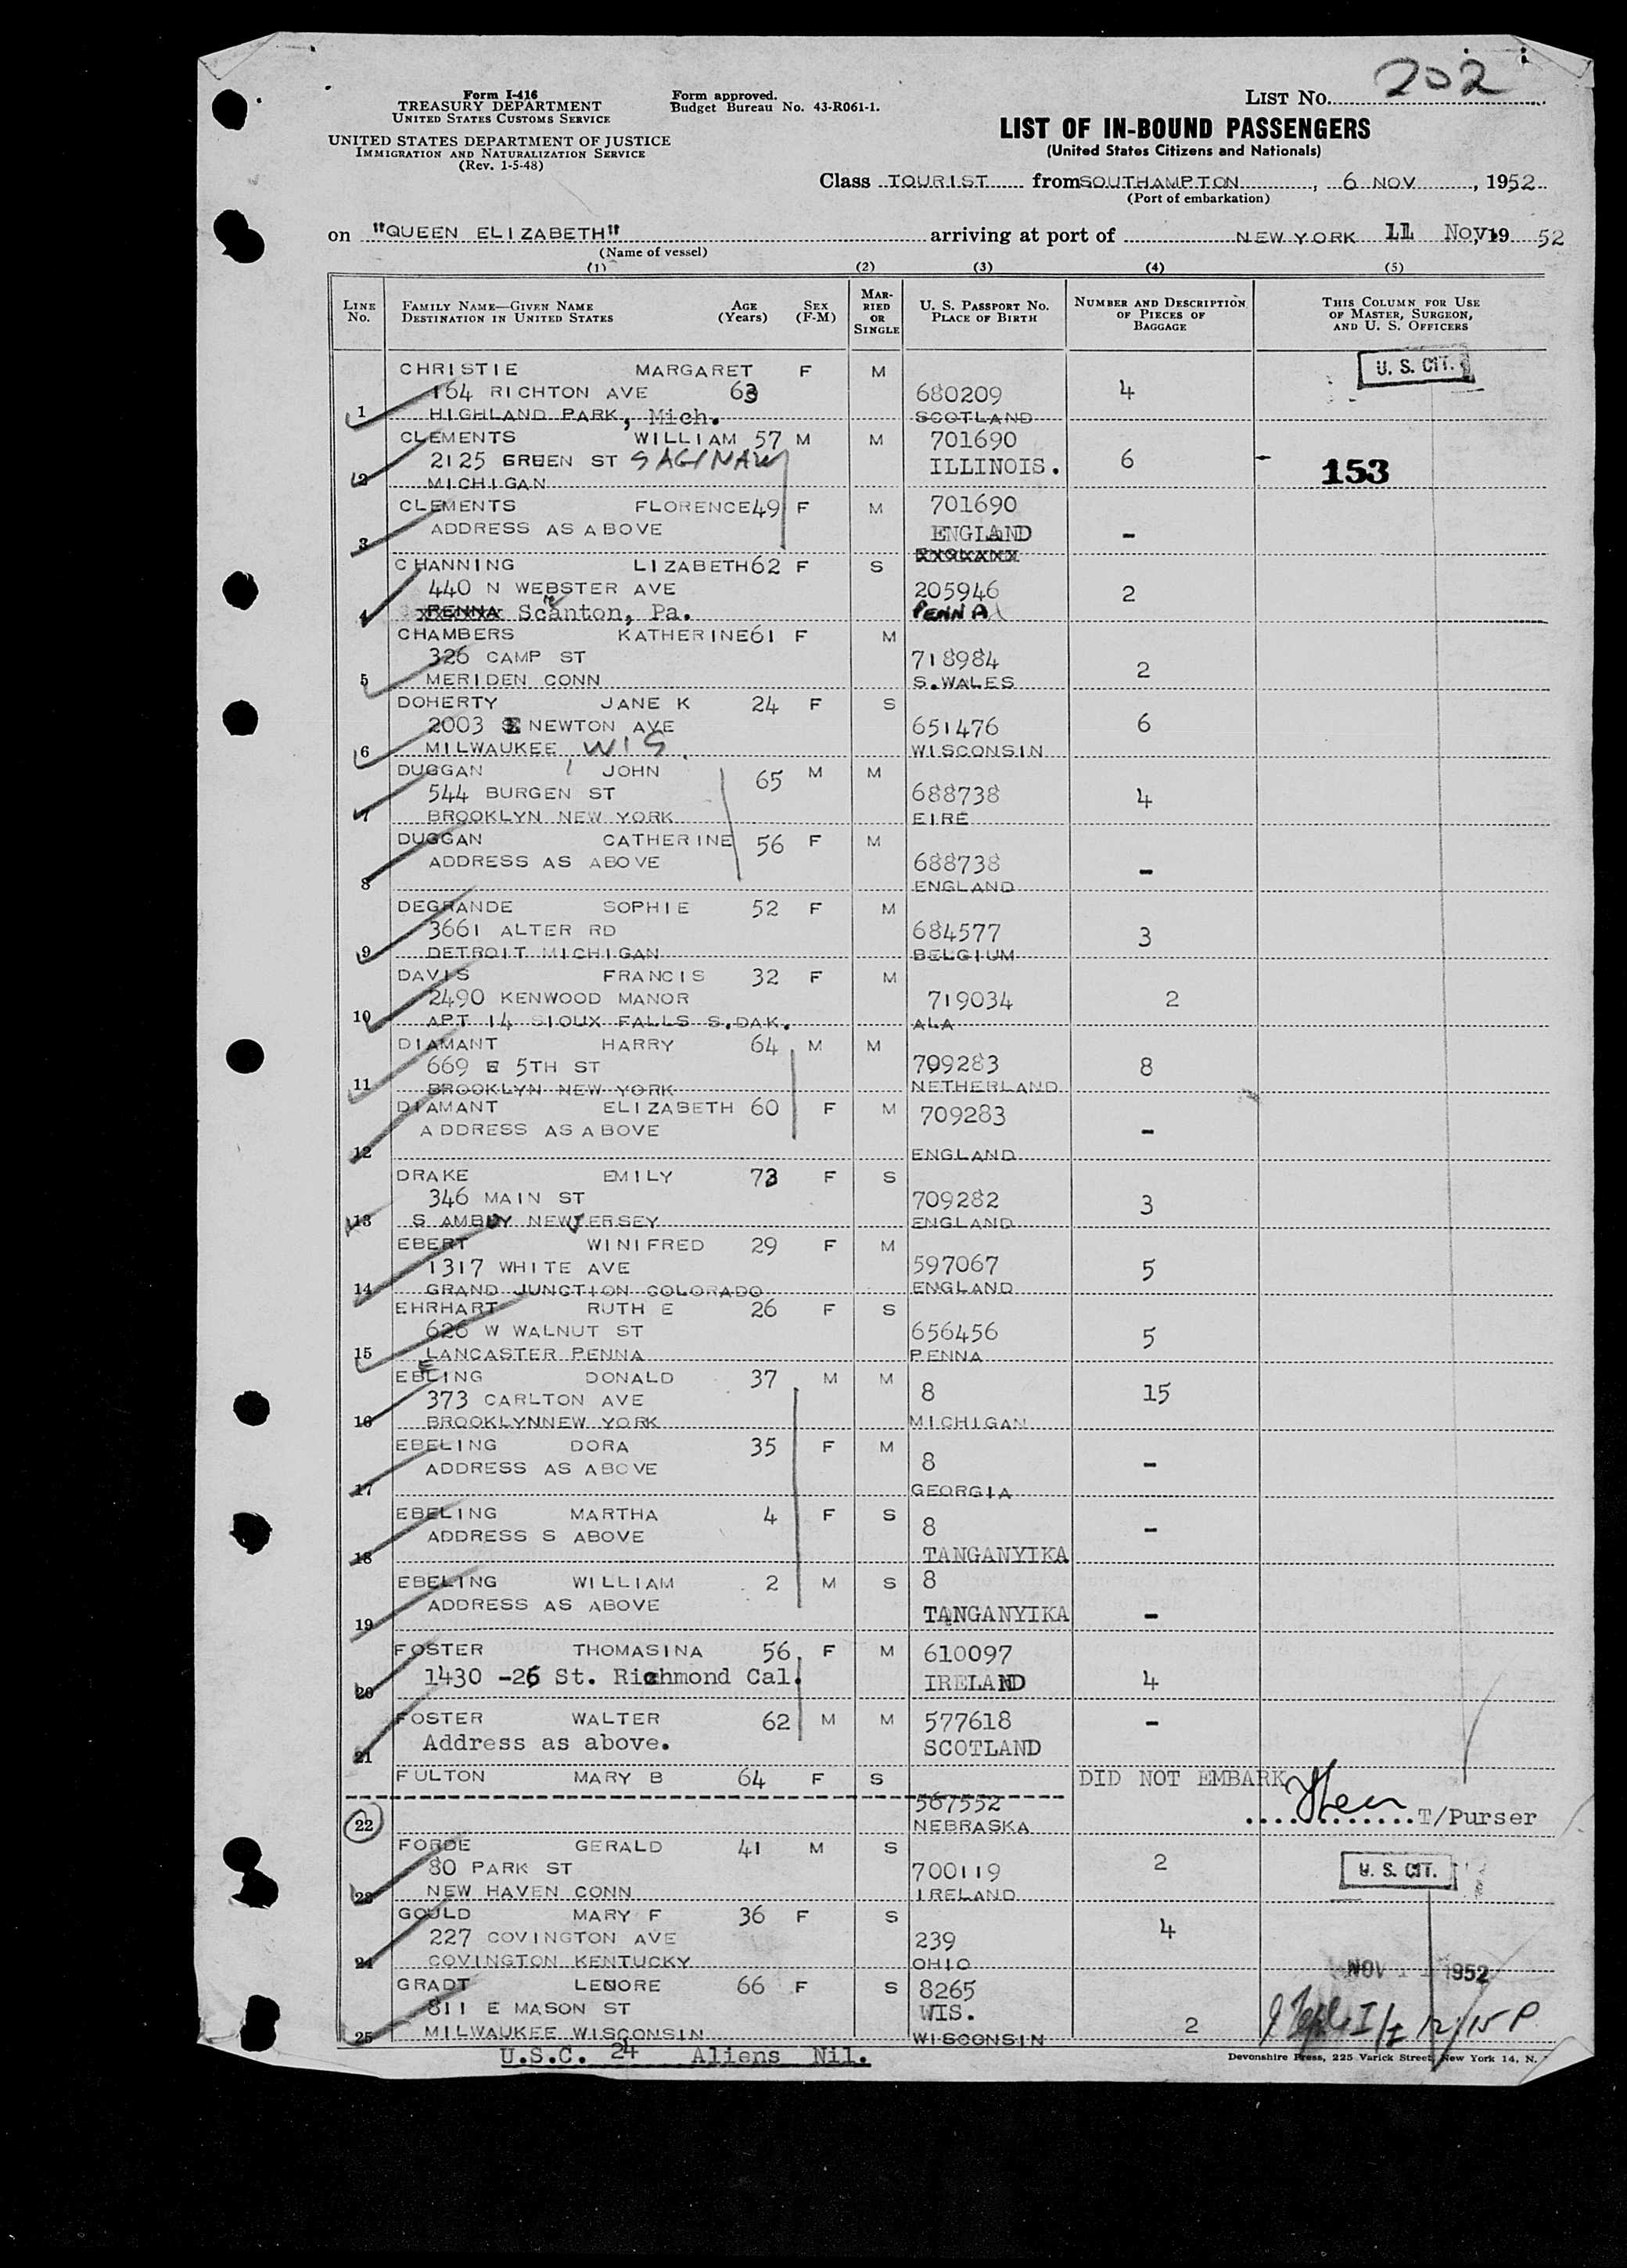 Form I-416
TREASURY DEPARTMENT
UNITED STATES CUSTOMS SERVICE
UNITED STATES DEPARTMENT OF JUSTICE
IMMIGRATION AND NATURALIZATION SERVICE
(Rev. 1-5-48)
Form approved.
Budget Bureau No. 43-R061-1.
LIST NO. 202
LIST OF IN-BOUND PASSENGERS
(United States Citizens and Nationals)
Class TOURIST from SOUTHAMPTON, 6 NOV, 1952
(Port of embarkation)
on "QUEEN ELIZABETH" arriving at port of NEW YORK 11 Nov, 19 52
(Name of vessel)
(1) (2) (3) (4) (5)
LINE NO.
FAMILY NAME—GIVEN NAME
DESTINATION IN UNITED STATES
AGE (Years)
SEX (F-M)
MARRIED OR SINGLE
U. S. PASSPORT NO.
PLACE OF BIRTH
NUMBER AND DESCRIPTION OF PIECES OF BAGGAGE
THIS COLUMN FOR USE OF MASTER, SURGEON, AND U. S. OFFICERS
CHRISTIE MARGARET F M U. S. CIT.
164 RICHTON AVE 63 680209 4
1 HIGHLAND PARK, Mich. SCOTLAND
CLEMENTS WILLIAM 57 M M 701690
2125 GREEN ST SAGINAW ILLINOIS. 6 153
2 MICHIGAN
CLEMENTS FLORENCE 49 F M 701690
ADDRESS AS ABOVE ENGLAND -
3
CHANNING LIZABETH 62 F S
440 N WEBSTER AVE 205946 2
4 PENNA Scranton, Pa. PENNA
CHAMBERS KATHERINE 61 F M
326 CAMP ST 718984 2
5 MERIDEN CONN S.WALES
DOHERTY JANE K 24 F S
2003 E NEWTON AVE 651476 6
6 MILWAUKEE, WIS. WISCONSIN
DUGGAN JOHN 65 M M
544 BURGEN ST 688738 4
7 BROOKLYN NEW YORK EIRE
DUGGAN CATHERINE 56 F M
ADDRESS AS ABOVE 688738 -
8 ENGLAND
DEGRANDE SOPHIE 52 F M
3661 ALTER RD 684577 3
9 DETROIT MICHIGAN BELGIUM
DAVIS FRANCIS 32 F M
2490 KENWOOD MANOR 719034 2
10 APT 14 SIOUX FALLS S.DAK. ALA
DIAMANT HARRY 64 M M
669 E 5TH ST 709283 8
11 BROOKLYN NEW YORK NETHERLAND
DIAMANT ELIZABETH 60 F M 709283
ADDRESS AS ABOVE -
12 ENGLAND
DRAKE EMILY 73 F S
346 MAIN ST 709282 3
13 S AMBOY NEW JERSEY ENGLAND
EBERT WINIFRED 29 F M
1317 WHITE AVE 597067 5
14 GRAND JUNCTION COLORADO ENGLAND
EHRHART RUTH E 26 F S
626 W WALNUT ST 656456 5
15 LANCASTER PENNA PENNA
EBELING DONALD 37 M M
373 CARLTON AVE 8 15
16 BROOKLYNNEW YORK MICHIGAN
EBELING DORA 35 F M
ADDRESS AS ABOVE 8 -
17 GEORGIA
EBELING MARTHA 4 F S
ADDRESS S ABOVE 8 -
18 TANGANYIKA
EBELING WILLIAM 2 M S 8
ADDRESS AS ABOVE TANGANYIKA -
19
FOSTER THOMASINA 56 F M 610097
1430 -26 St. Richmond Cal. IRELAND 4
20
FOSTER WALTER 62 M M 577618 -
Address as above. SCOTLAND
21
FULTON MARY B 64 F S DID NOT EMBARK
567552 T/Purser
22 NEBRASKA
FORDE GERALD 41 M S
80 PARK ST 700119 2 U. S. CIT.
23 NEW HAVEN CONN IRELAND
GOULD MARY F 36 F S
227 COVINGTON AVE 239 4
24 COVINGTON KENTUCKY OHIO NOV 1952
GRADT LENORE 66 F S 8265
811 E MASON ST WIS.
25 MILWAUKEE WISCONSIN WISCONSIN 2
U.S.C. 24 Aliens Nil.
Devonshire Press, 225 Varick Street, New York 14, N.